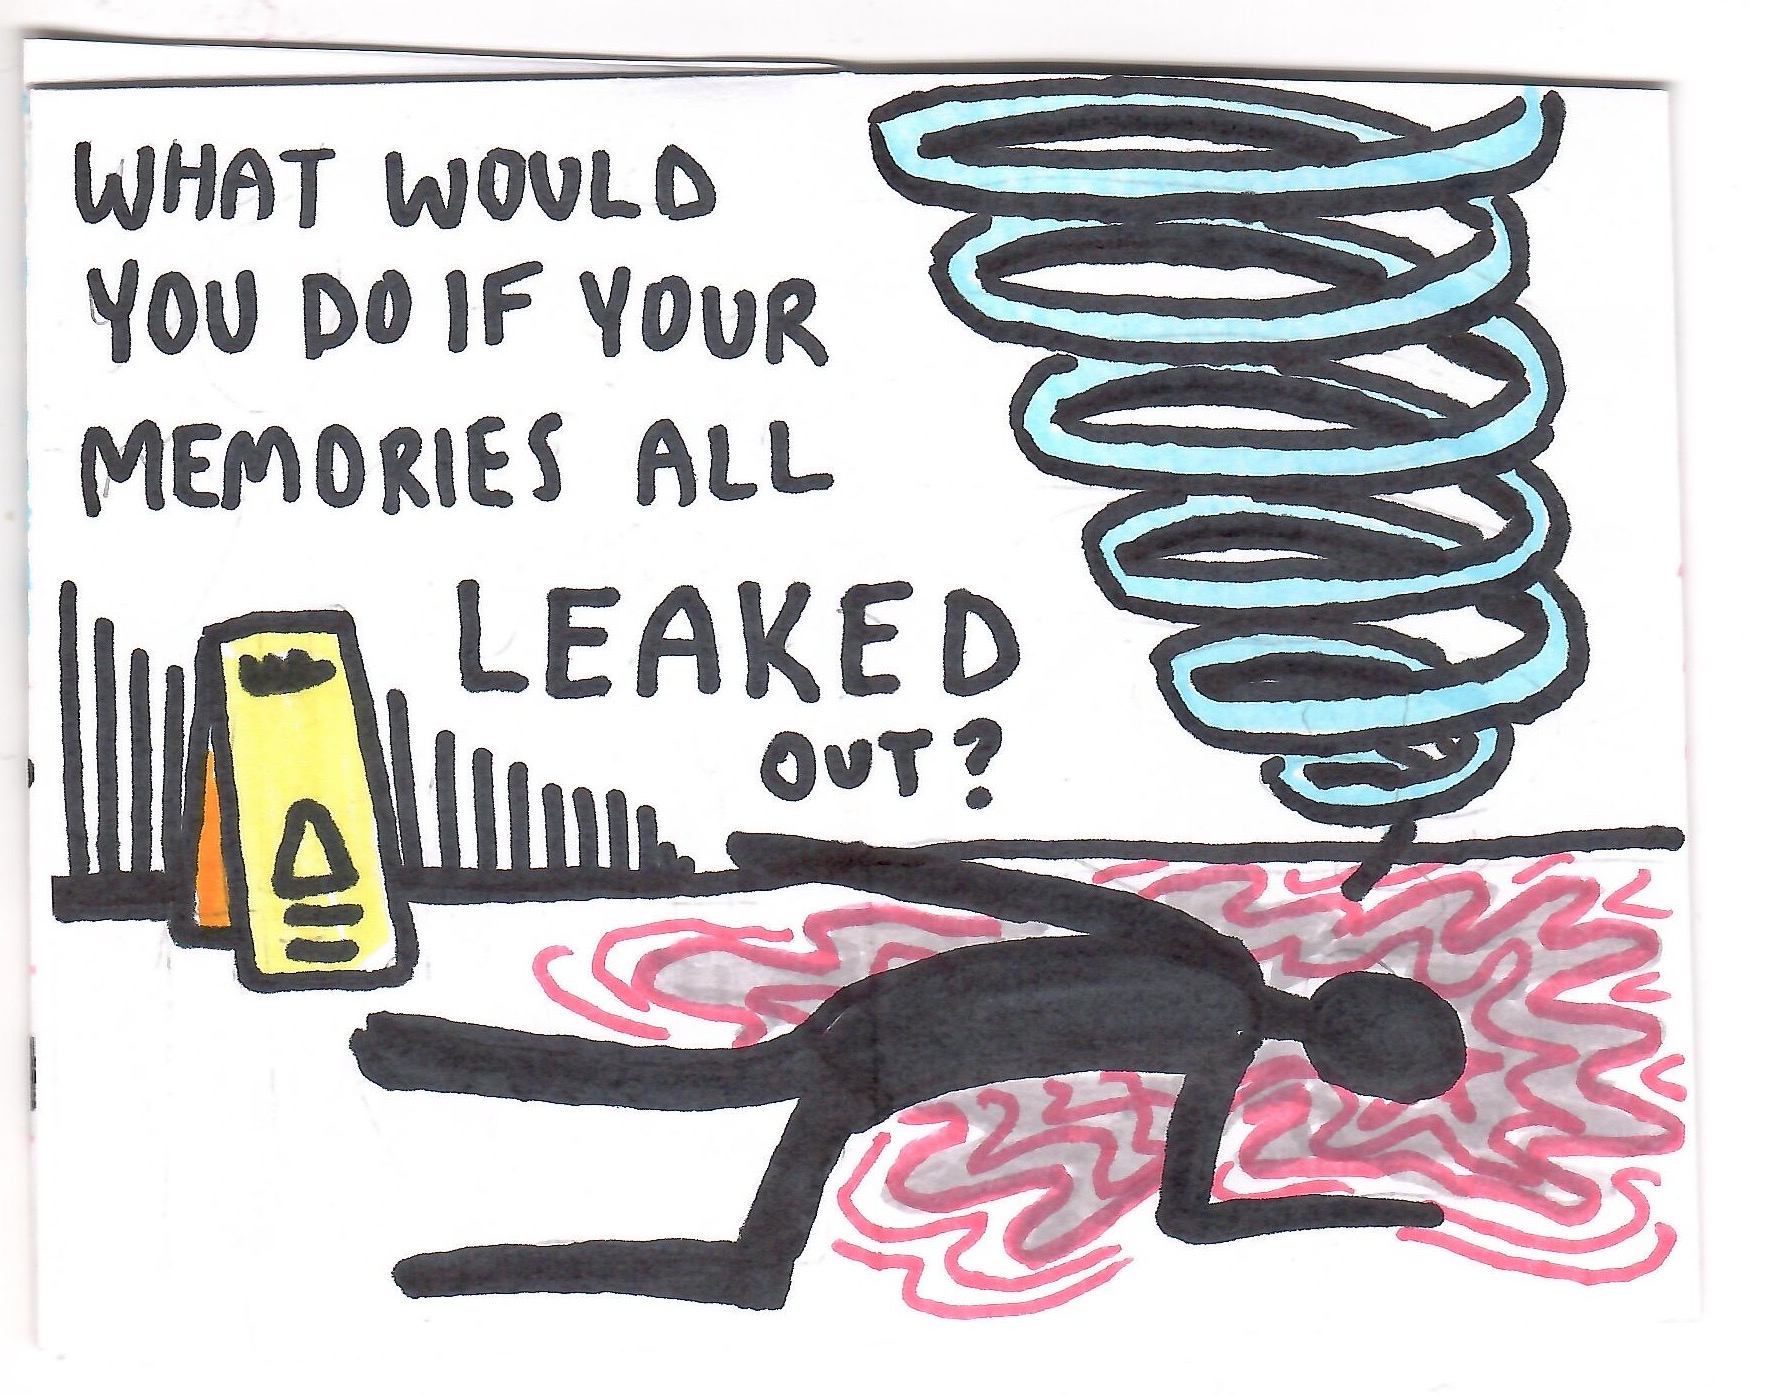 WHAT WOULD
YOU DO IF YOUR
MEMORIES ALL
LEAKED
OUT?